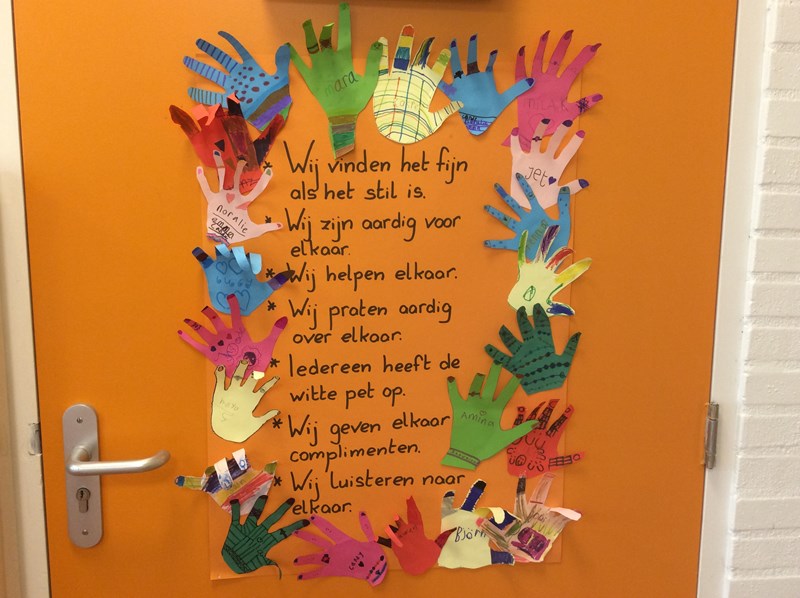 mara
Jet
noralie
* Wij vinden het fijn
als het stil is.
* Wij zijn aardig voor
elkaar.
* Wij helpen elkaar.
* Wij praten aardig
over elkaar.
* Iedereen heeft de
witte pet op.
* Wij geven elkaar
complimenten.
* Wij luisteren naar
elkaar.
Amina
Björn